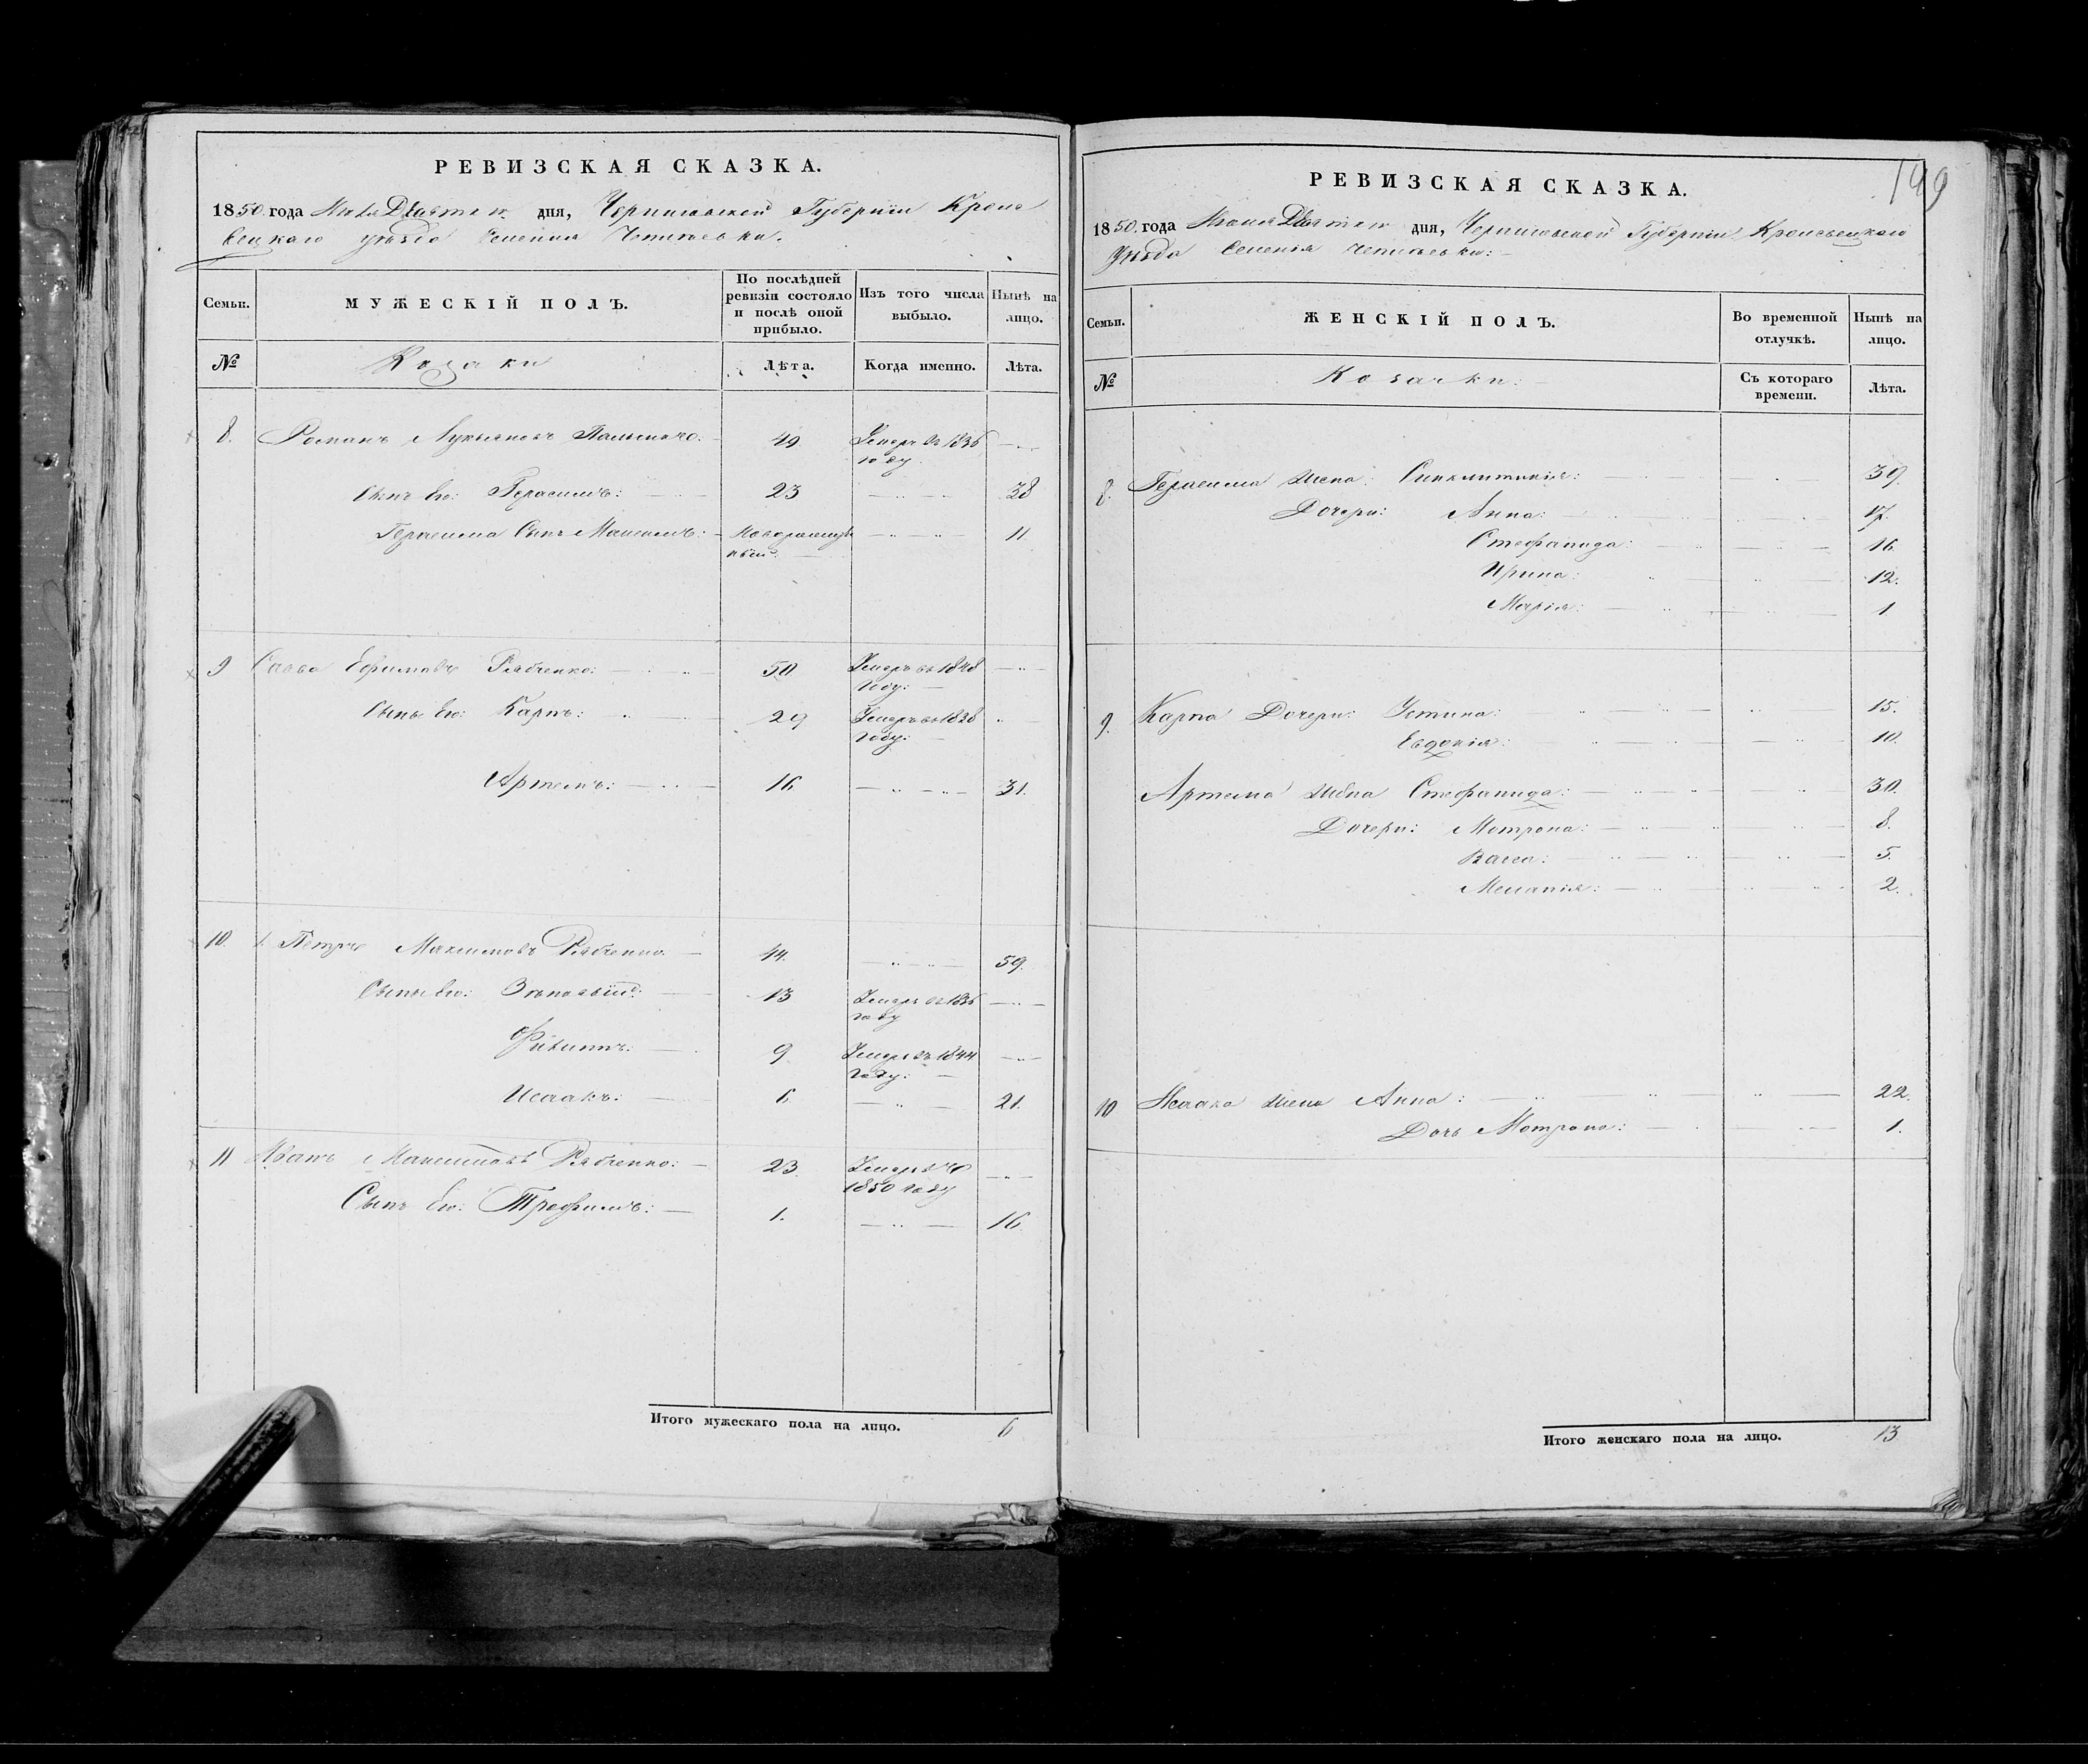 РЕВИЗСКАЯ СКАЗКА.
1850. года дня, Черниговской Губерніи Кроле
вецкаго уѣзда Селенія
Семьи.
МУЖЕСКІЙ ПОЛЪ.
По послѣдней ревизіи состояло и послѣ оной прибыло.
Изъ того числа выбыло.
Нынѣ на лицо.
№ Козаки Лѣта. Когда именно. Лѣта.
8. Романъ Лукьяновъ 49. Умеръ въ 1836 году
Сынъ Его: Герасимъ: 23 38
Герасима Сынъ Максимъ: 11
9 Савва Ефимовъ Рябченко: 50 Умеръ въ 1848 Году:
Сынъ Его: Карпъ: 29 Умеръ въ 1838 Году:
Артемъ: 16 31.
10. 1. Петръ Максимовъ Рябченко. 44. 59.
Сыны Его: 13 Умеръ въ 1836 году
9 Умеръ въ 1844 Году:
Исаакъ: 6 21.
11 Иванъ Максимовъ Рябченко: 23. Умеръ 1850 году
Сынъ Его: Трофимъ: 1. 16.
Итого мужескаго пола на лицо. 6
199
РЕВИЗСКАЯ СКАЗКА.
1850. года дня, Черниговской Губерніи Кролевецкаго
Уѣзда Селенія
Семьи.
ЖЕНСКІЙ ПОЛЪ.
Во временной отлучкѣ.
Нынѣ на лицо.
№ Козачки: Съ котораго времени. Лѣта.
8. Герасима жена: Синклитикія: 39.
Дочери: Анна: 17.
Стефанида: 16.
Ирина: 12.
Марія: 1
9. Карпа Дочери: Устина: 15.
Евдокія: 10.
Артема жена Стефанида: 30.
Дочери: Мотрона: 8.
Васса: 5.
Меланія: 2.
10 Исаака жена Анна: 22.
Дочь Мотрона: 1.
Итого женскаго пола на лицо. 13